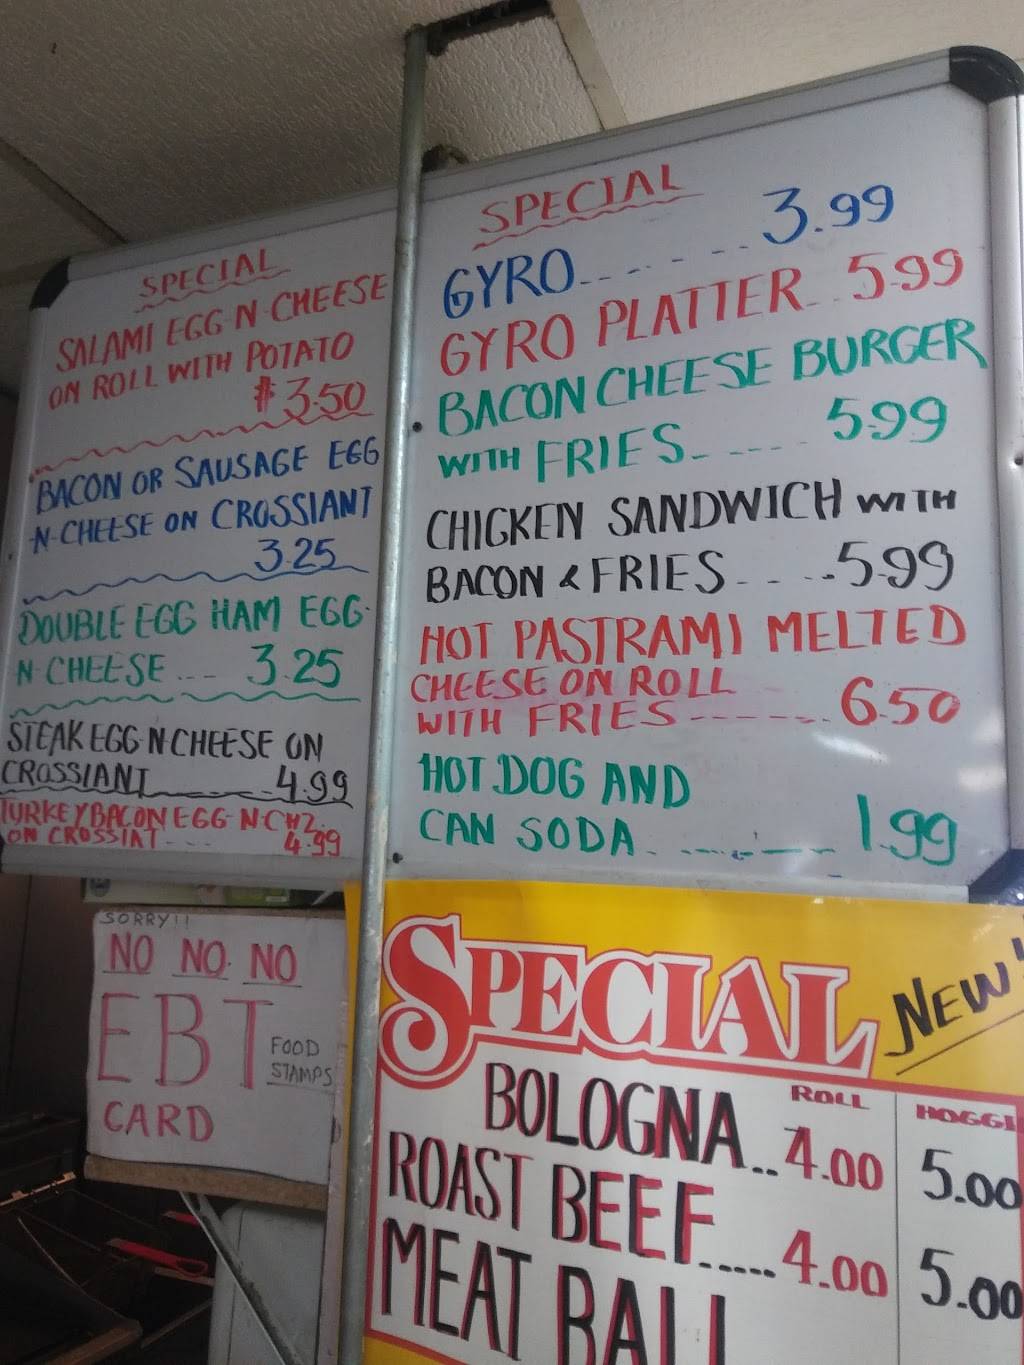 SPECIAL
SALAMI EGG-N-CHEESE
ON ROLL WITH POTATO
$3.50
BACON OR SAUSAGE EGG
-N-CHEESE ON CROSSIANT
3.25
DOUBLE EGG HAM EGG-
N-CHEESE ... 3.25
STEAK EGG N CHEESE ON
CROSSIANT ---- 4.99
TURKEY BACON EGG-N-CHZ
ON CROSSIAT --- 4.99
SPECIAL
GYRO ------ 3.99
GYRO PLATTER -- 5.99
BACON CHEESE BURGER
WITH FRIES ----- 5.99
CHICKEN SANDWICH WITH
BACON & FRIES ---- 5.99
HOT PASTRAMI MELTED
CHEESE ON ROLL
WITH FRIES ------- 6.50
HOT DOG AND
CAN SODA ------- 1.99
SORRY!!
NO NO. NO
EBT FOOD
STAMPS
CARD
SPECIAL
NEW
ROLL HOGGI
BOLOGNA .. 4.00 5.00
ROAST BEEF ..... 4.00 5.00
MEAT BALL